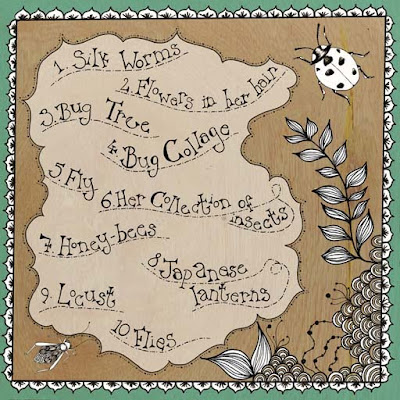 1. Silk Worms
2. Flowers in her hair
3. Bug Tree
4. Bug Collage
5 Fly
6. Her Collection of
insects
7. Honey-bees
8 Japanese
lanterns
9. Locust
10 Flies